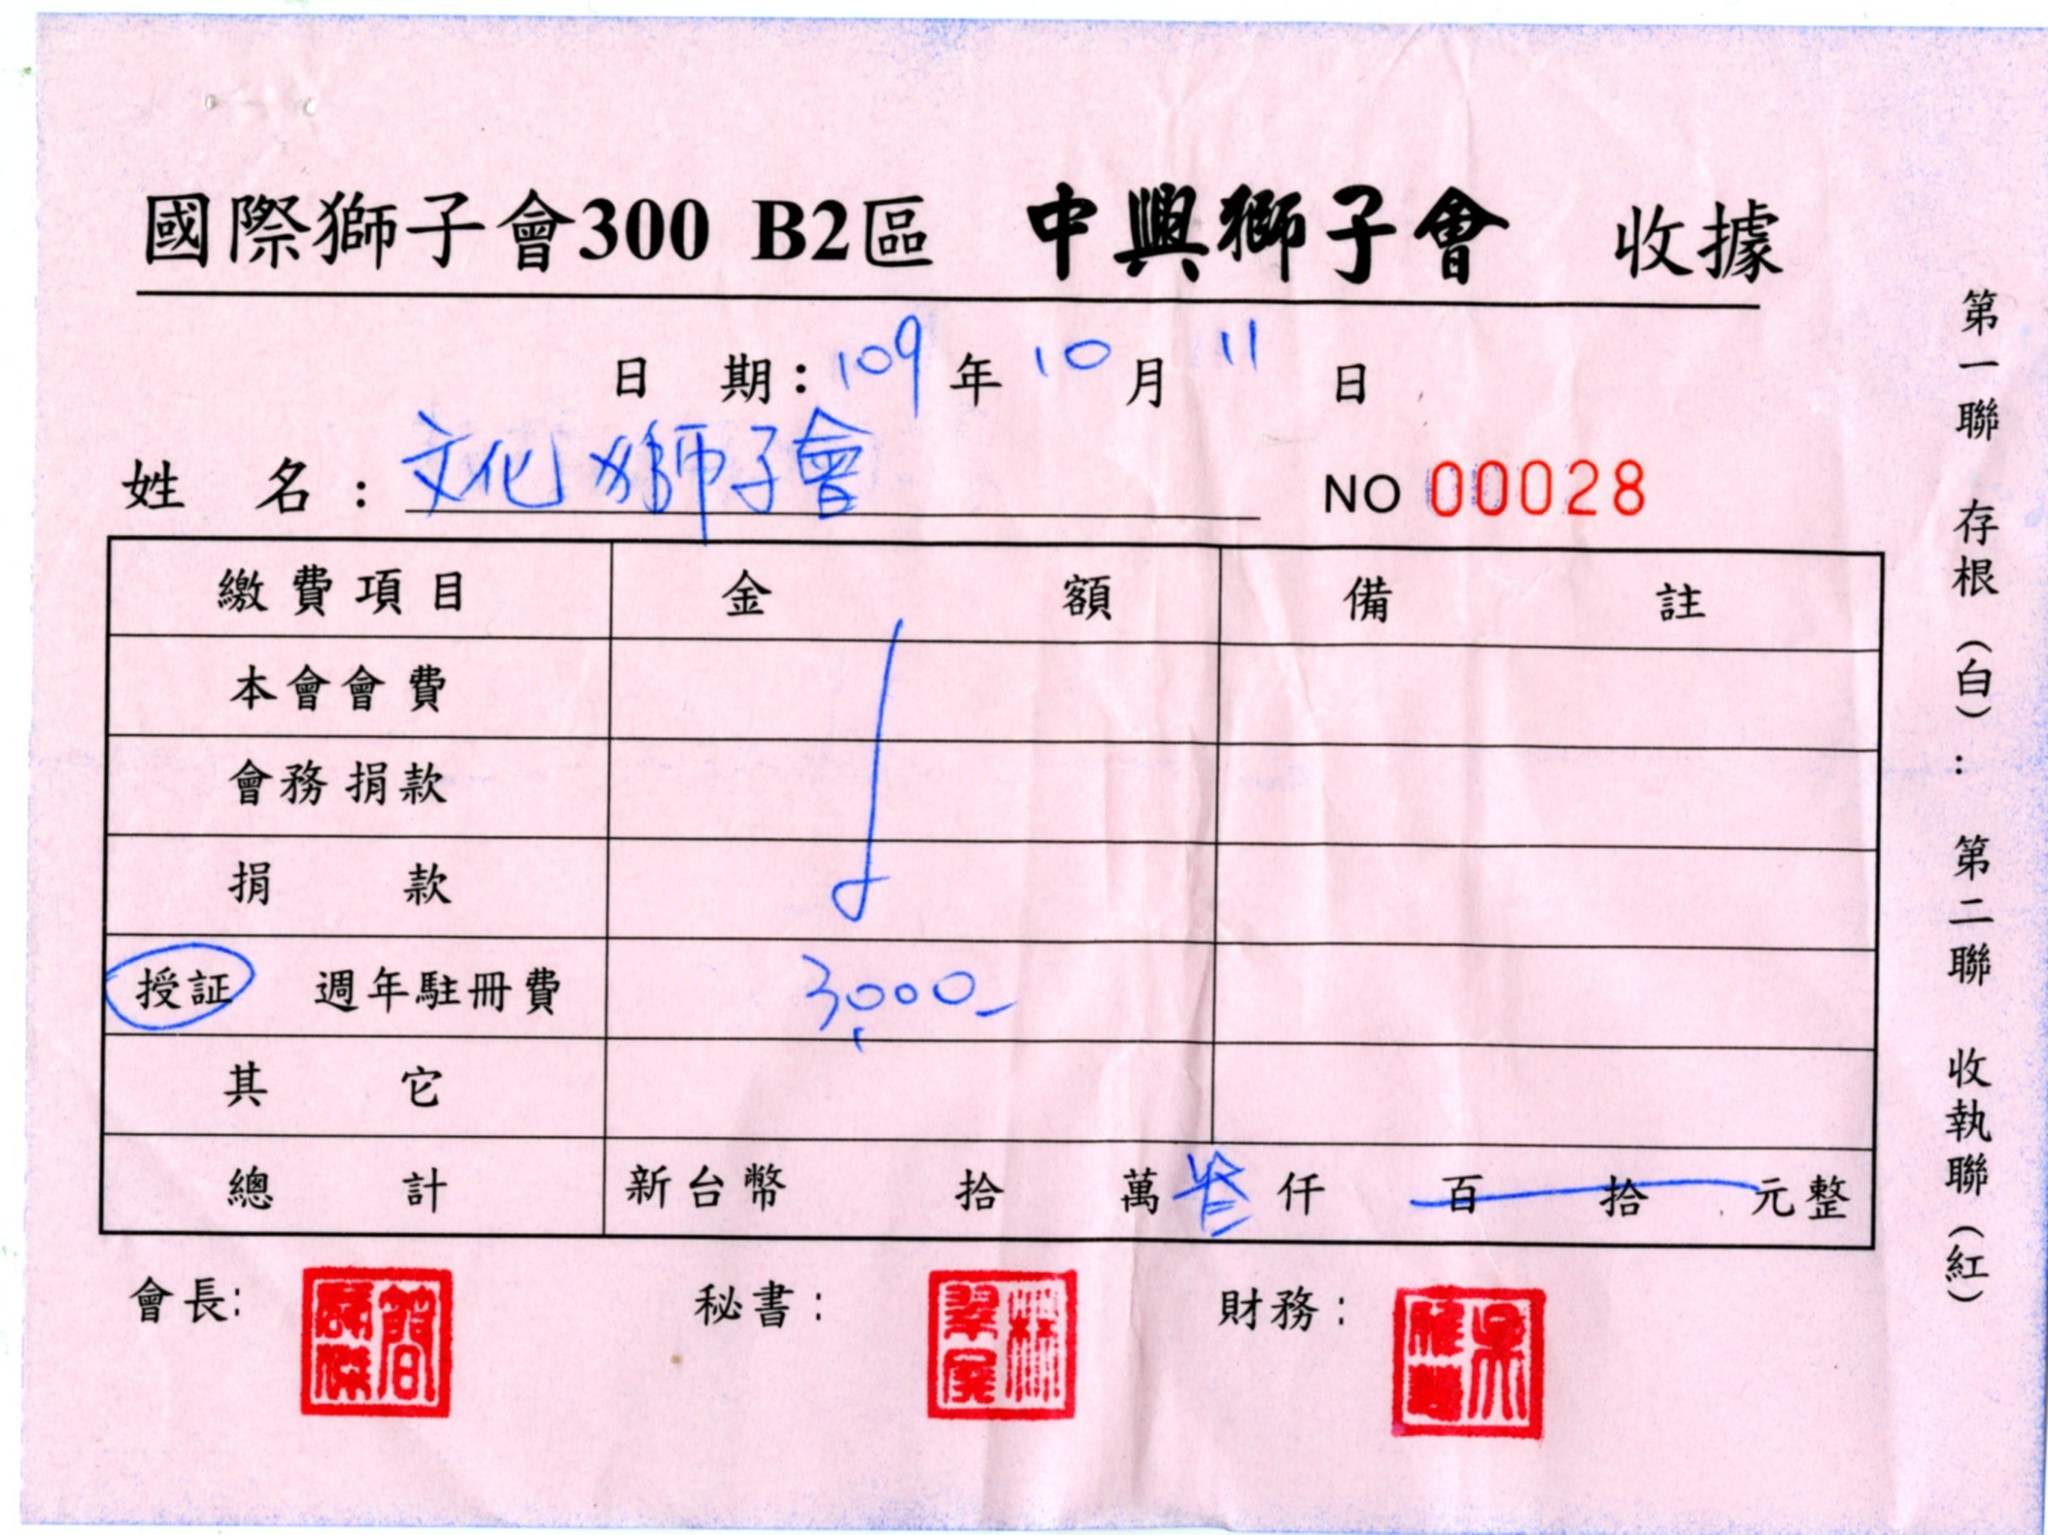 國際獅子會300 B2區 中興獅子會 收據
日 期：109 年 10 月 11 日
姓 名：文化獅子會
NO 00028
繳費項目 金 額 備 註
本會會費
會務捐款
捐 款
授証 週年駐冊費 3,000-
其 它
總 計 新台幣 拾 萬 叁 仟 百 拾 元整
會長: 秘書： 財務：
第一聯 存根（白）： 第二聯 收執聯（紅）